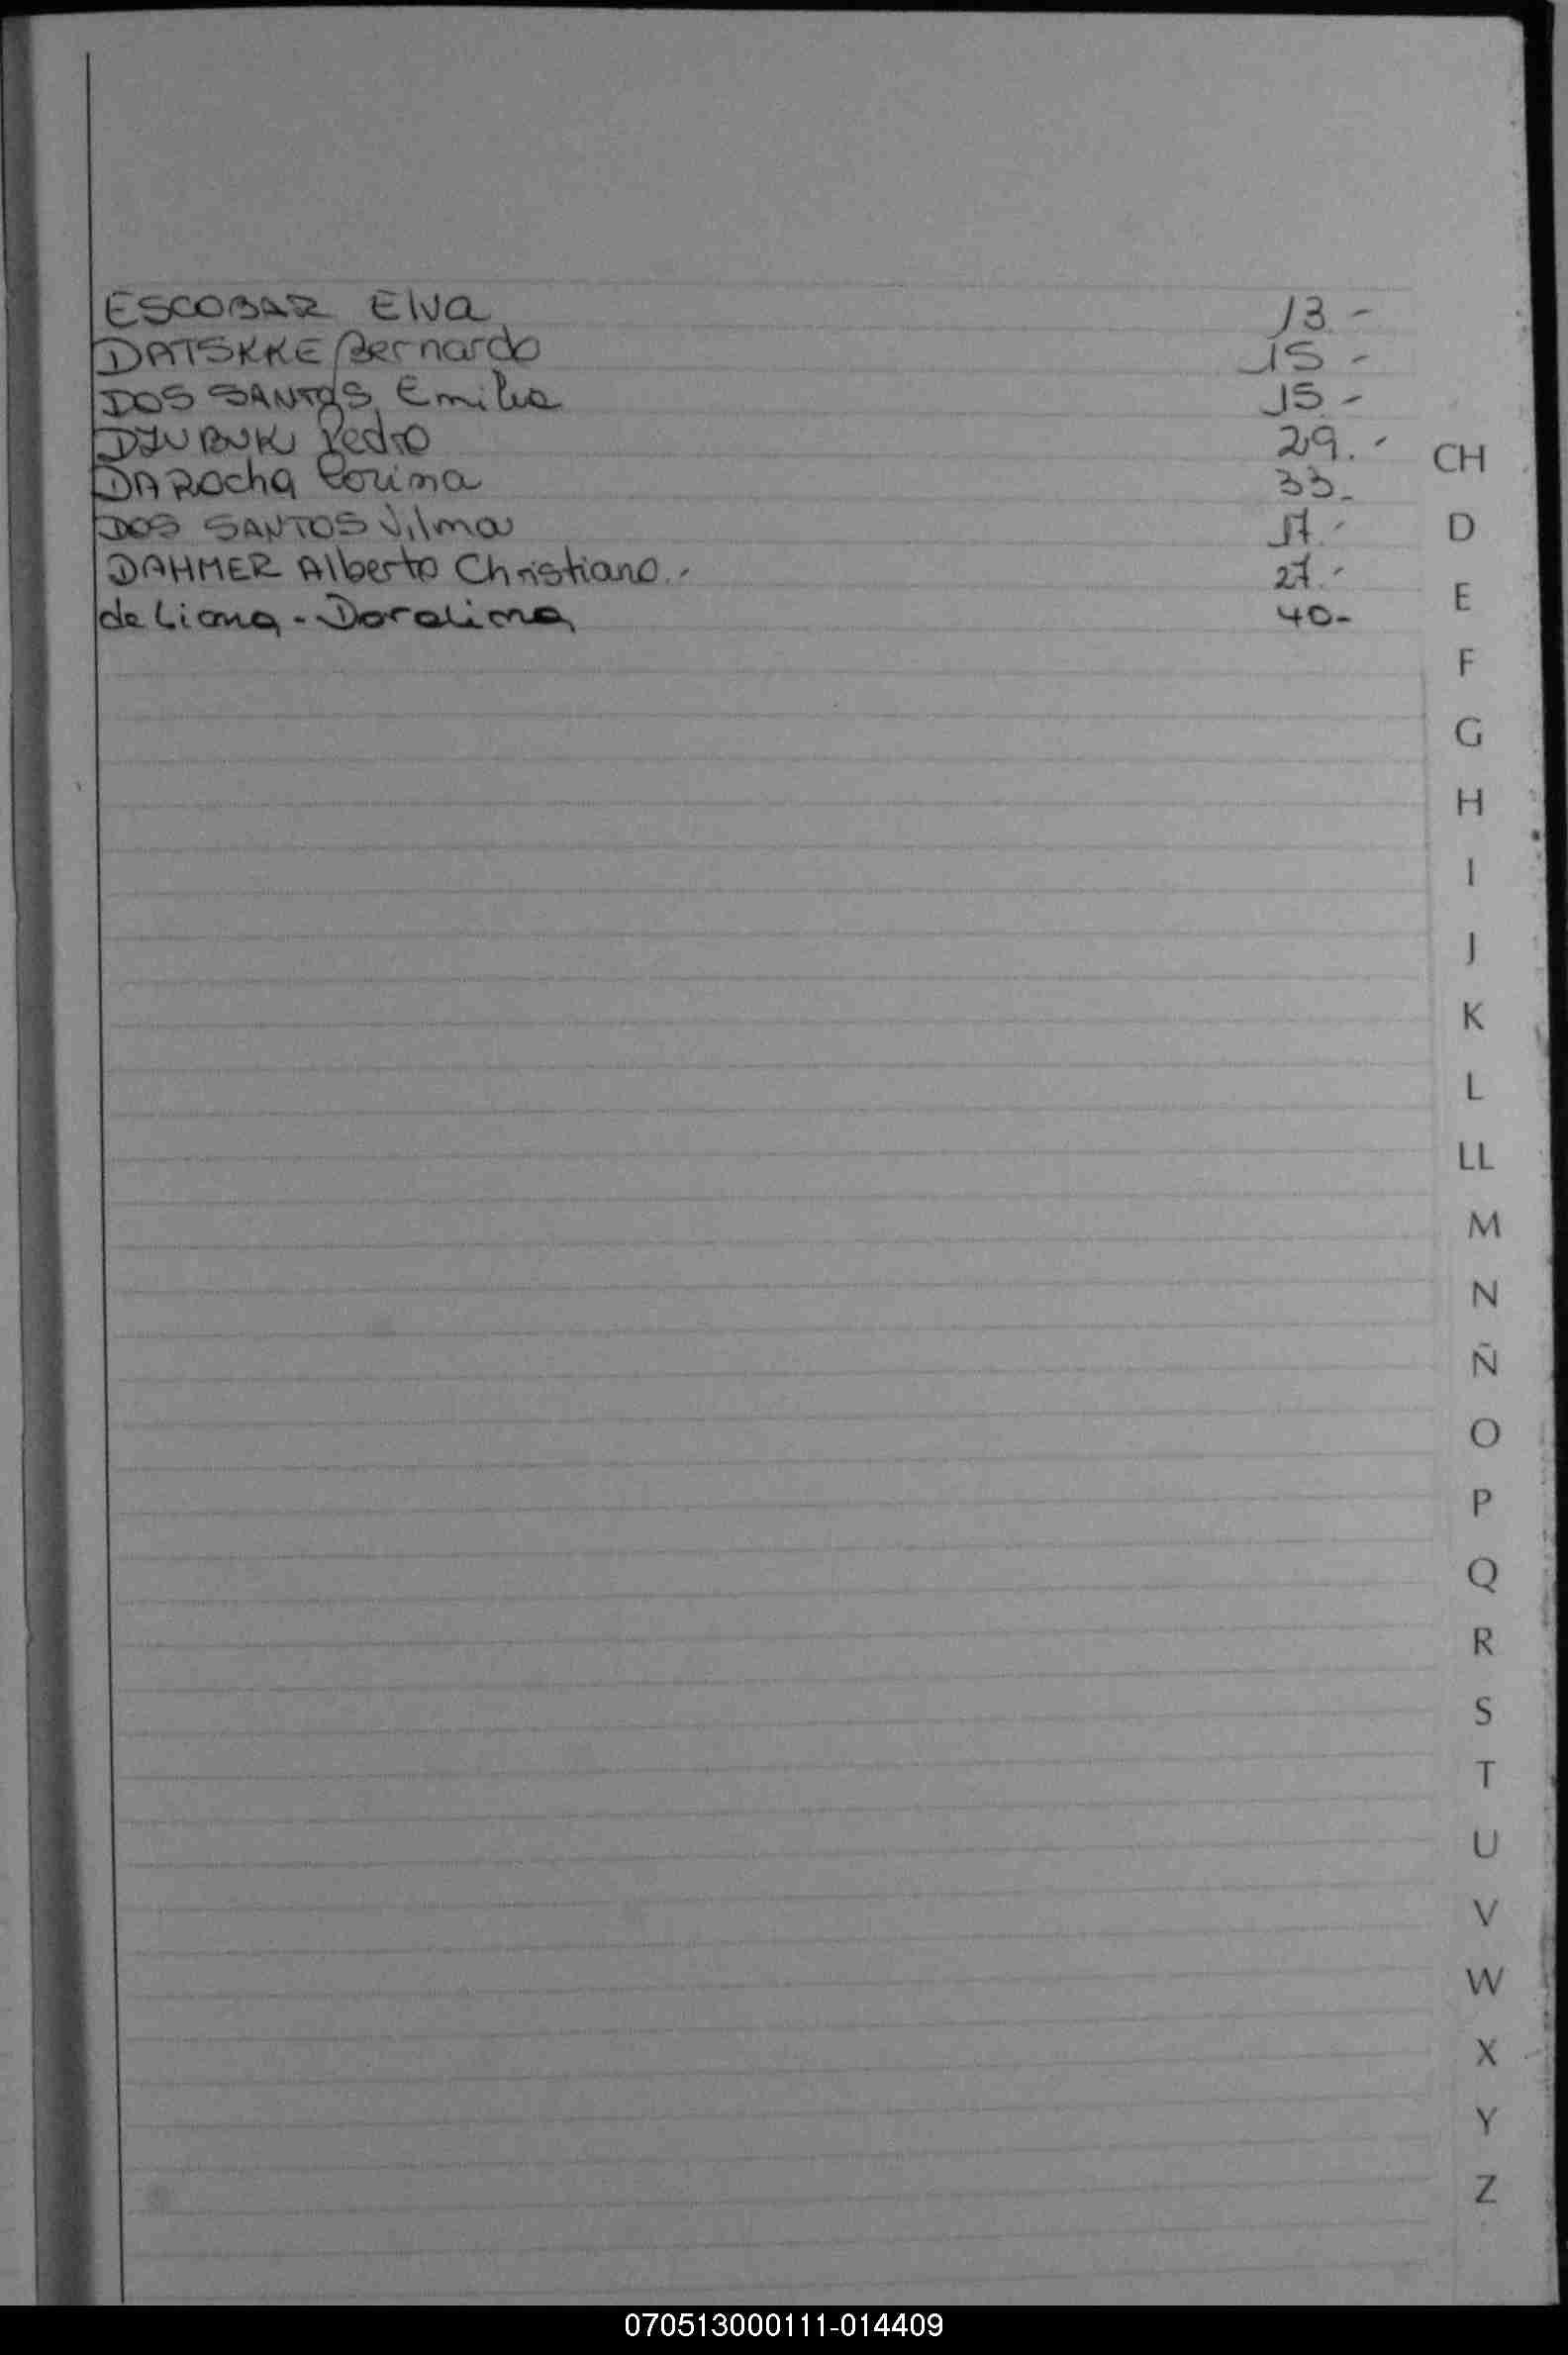 ESCOBAR Elva 13.-
DATSKKE Bernardo 15-
DOS SANTOS Emilia 15.-
Pedro 29.-
DA ROcha Corina 33.-
DOS SANTOS Vilma 17.-
DAHMER Alberto Christiano.- 27.-
de Lima - Doralina 40-
CH
D
E
F
G
H
I
J
K
L
LL
M
N
Ñ
O
P
Q
R
S
T
U
V
W
X
Y
Z
070513000111-014409